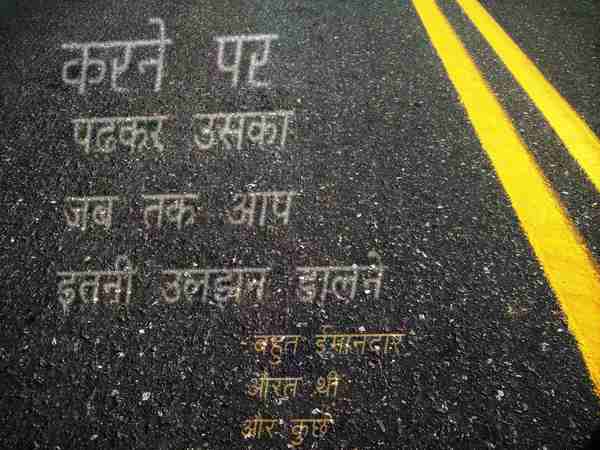 करने पर
पढकर उसका
जब तक आप
इतनी उलझन डालने
-बहुत ईमानदार
औरत थी
और कुछ